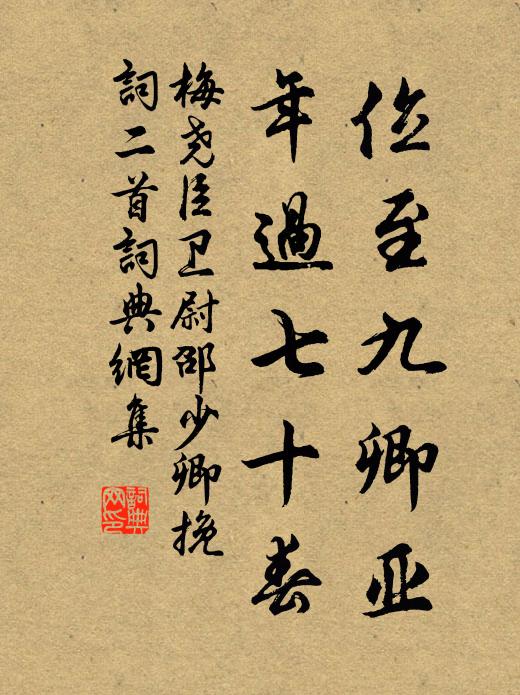 位至九卿亚
年過七十春
梅尧臣卫尉邵少卿挽
詞二首詞典網集
詞典
网印